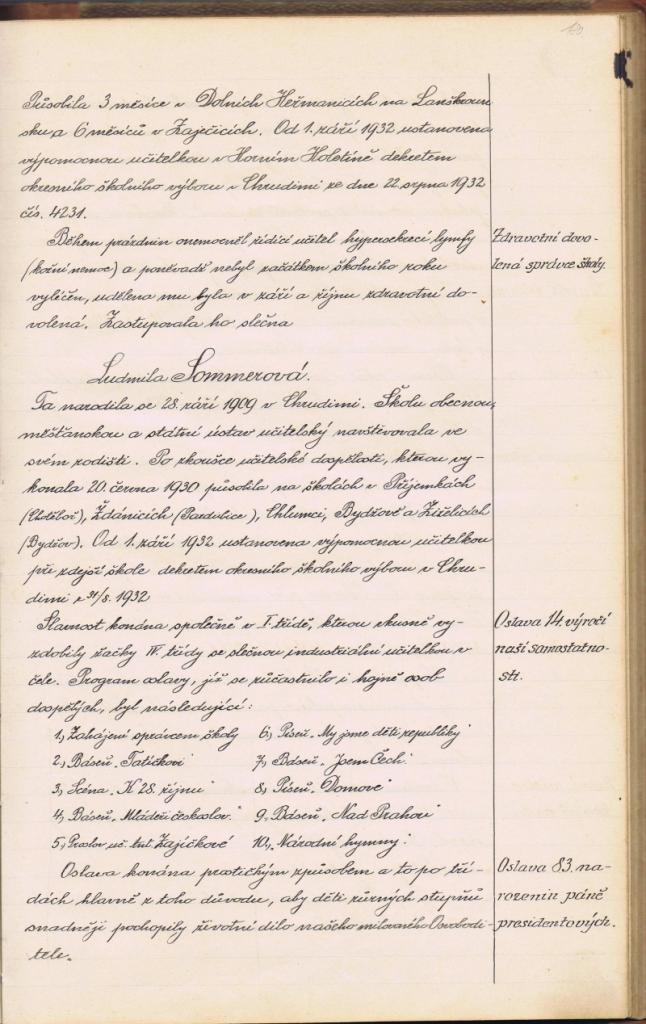 Působila 3 měsíce v Dolních Heřmanicích na Lanškroun-
sku, a 6 měsíců v Zaječicích. Od 1. září 1932 ustanovena
výpomocnou učitelkou v Horním Holetíně dekretem
okresního školního výboru v Chrudimi ze dne 22. srpna 1932
čís. 4231.
Během prázdnin onemocněl řídící učitel hypersekrecí lymfy
(kožní nemoc) a poněvadž nebyl začátkem školního roku
vyléčen, udělena mu byla v září a říjnu zdravotní do-
volená. Zastupovala ho slečna
Zdravotní dovo-
lená správce školy.
Ludmila Sommerová.
Ta narodila se 28. září 1909 v Chrudimi. Školu obecnou,
měšťanskou a státní ústav učitelský navštěvovala ve
svém rodišti. Po zkoušce učitelské dospělosti, kterou vy-
konala 20. června 1930 působila na školách v Příjemkách
(Chotěboř), Ždánicích (Pardubice), Chlumci, Bydžově a Žiželicích
(Bydžov). Od 1. září 1932 ustanovena výpomocnou učitelkou
při zdejší škole dekretem okresního školního výboru v Chru-
dimi z 31/8. 1932
Slavnost konána společně v I. třídě, kterou vkusně vy-
zdobily žačky IV. třídy se slečnou industriální učitelkou v
čele. Program oslavy, jíž se zúčastnilo i hojně osob
dospělých, byl následující:
Oslava 14. výročí
naší samostatno-
sti.
1., Zahájení správcem školy
2., Báseň „Tatíčkovi"
3., Scéna „K 28. říjnu"
4., Báseň „Mládeži českoslov."
5., Proslov uč. Zajíčkové
6., Píseň „My jsme děti republiky"
7., Báseň „Jsem Čech"
8., Píseň „Domove"
9., Báseň „Nad Prahou"
10., „Národní hymny."
Oslava konána prostičkým způsobem a to po tří-
dách hlavně z toho důvodu, aby děti různých stupňů
snadněji pochopily životní dílo našeho milovaného Osvobodi-
tele.
Oslava 83. na-
rozenin páně
presidentových.